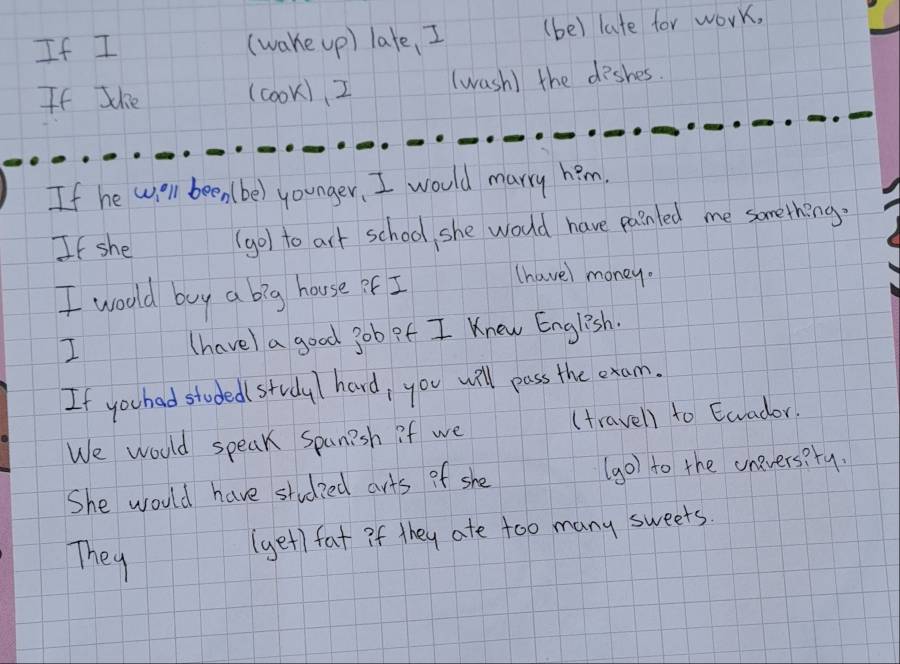 If I (wake up) late, I (be) late for work.
If Julie (cook), I (wash) the dishes.
If he will been (be) younger, I would marry him.
If she (go) to art school, she would have painted me something.
I would buy a big house if I (have) money.
I (have) a good job if I knew English.
If you had studed (study) hard, you will pass the exam.
We would speak Spanish if we (travel) to Ecuador.
She would have studied arts if she (go) to the university.
They (get) fat if they ate too many sweets.